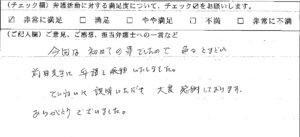 (チェック欄) 弁護活動に対する満足度について、チェック☑をお願いします。
☑ 非常に満足 □ 満足 □ やや満足 □ 不満 □ 非常に不満
(ご記入欄) ご意見、ご感想、担当弁護士への一言など
今回は 初めての事でしたので 色々とまどい
前田先生に 弁護を お願いいたしました。
ていねいに 説明いただき 大変 感謝しております。
ありがとう ございました。